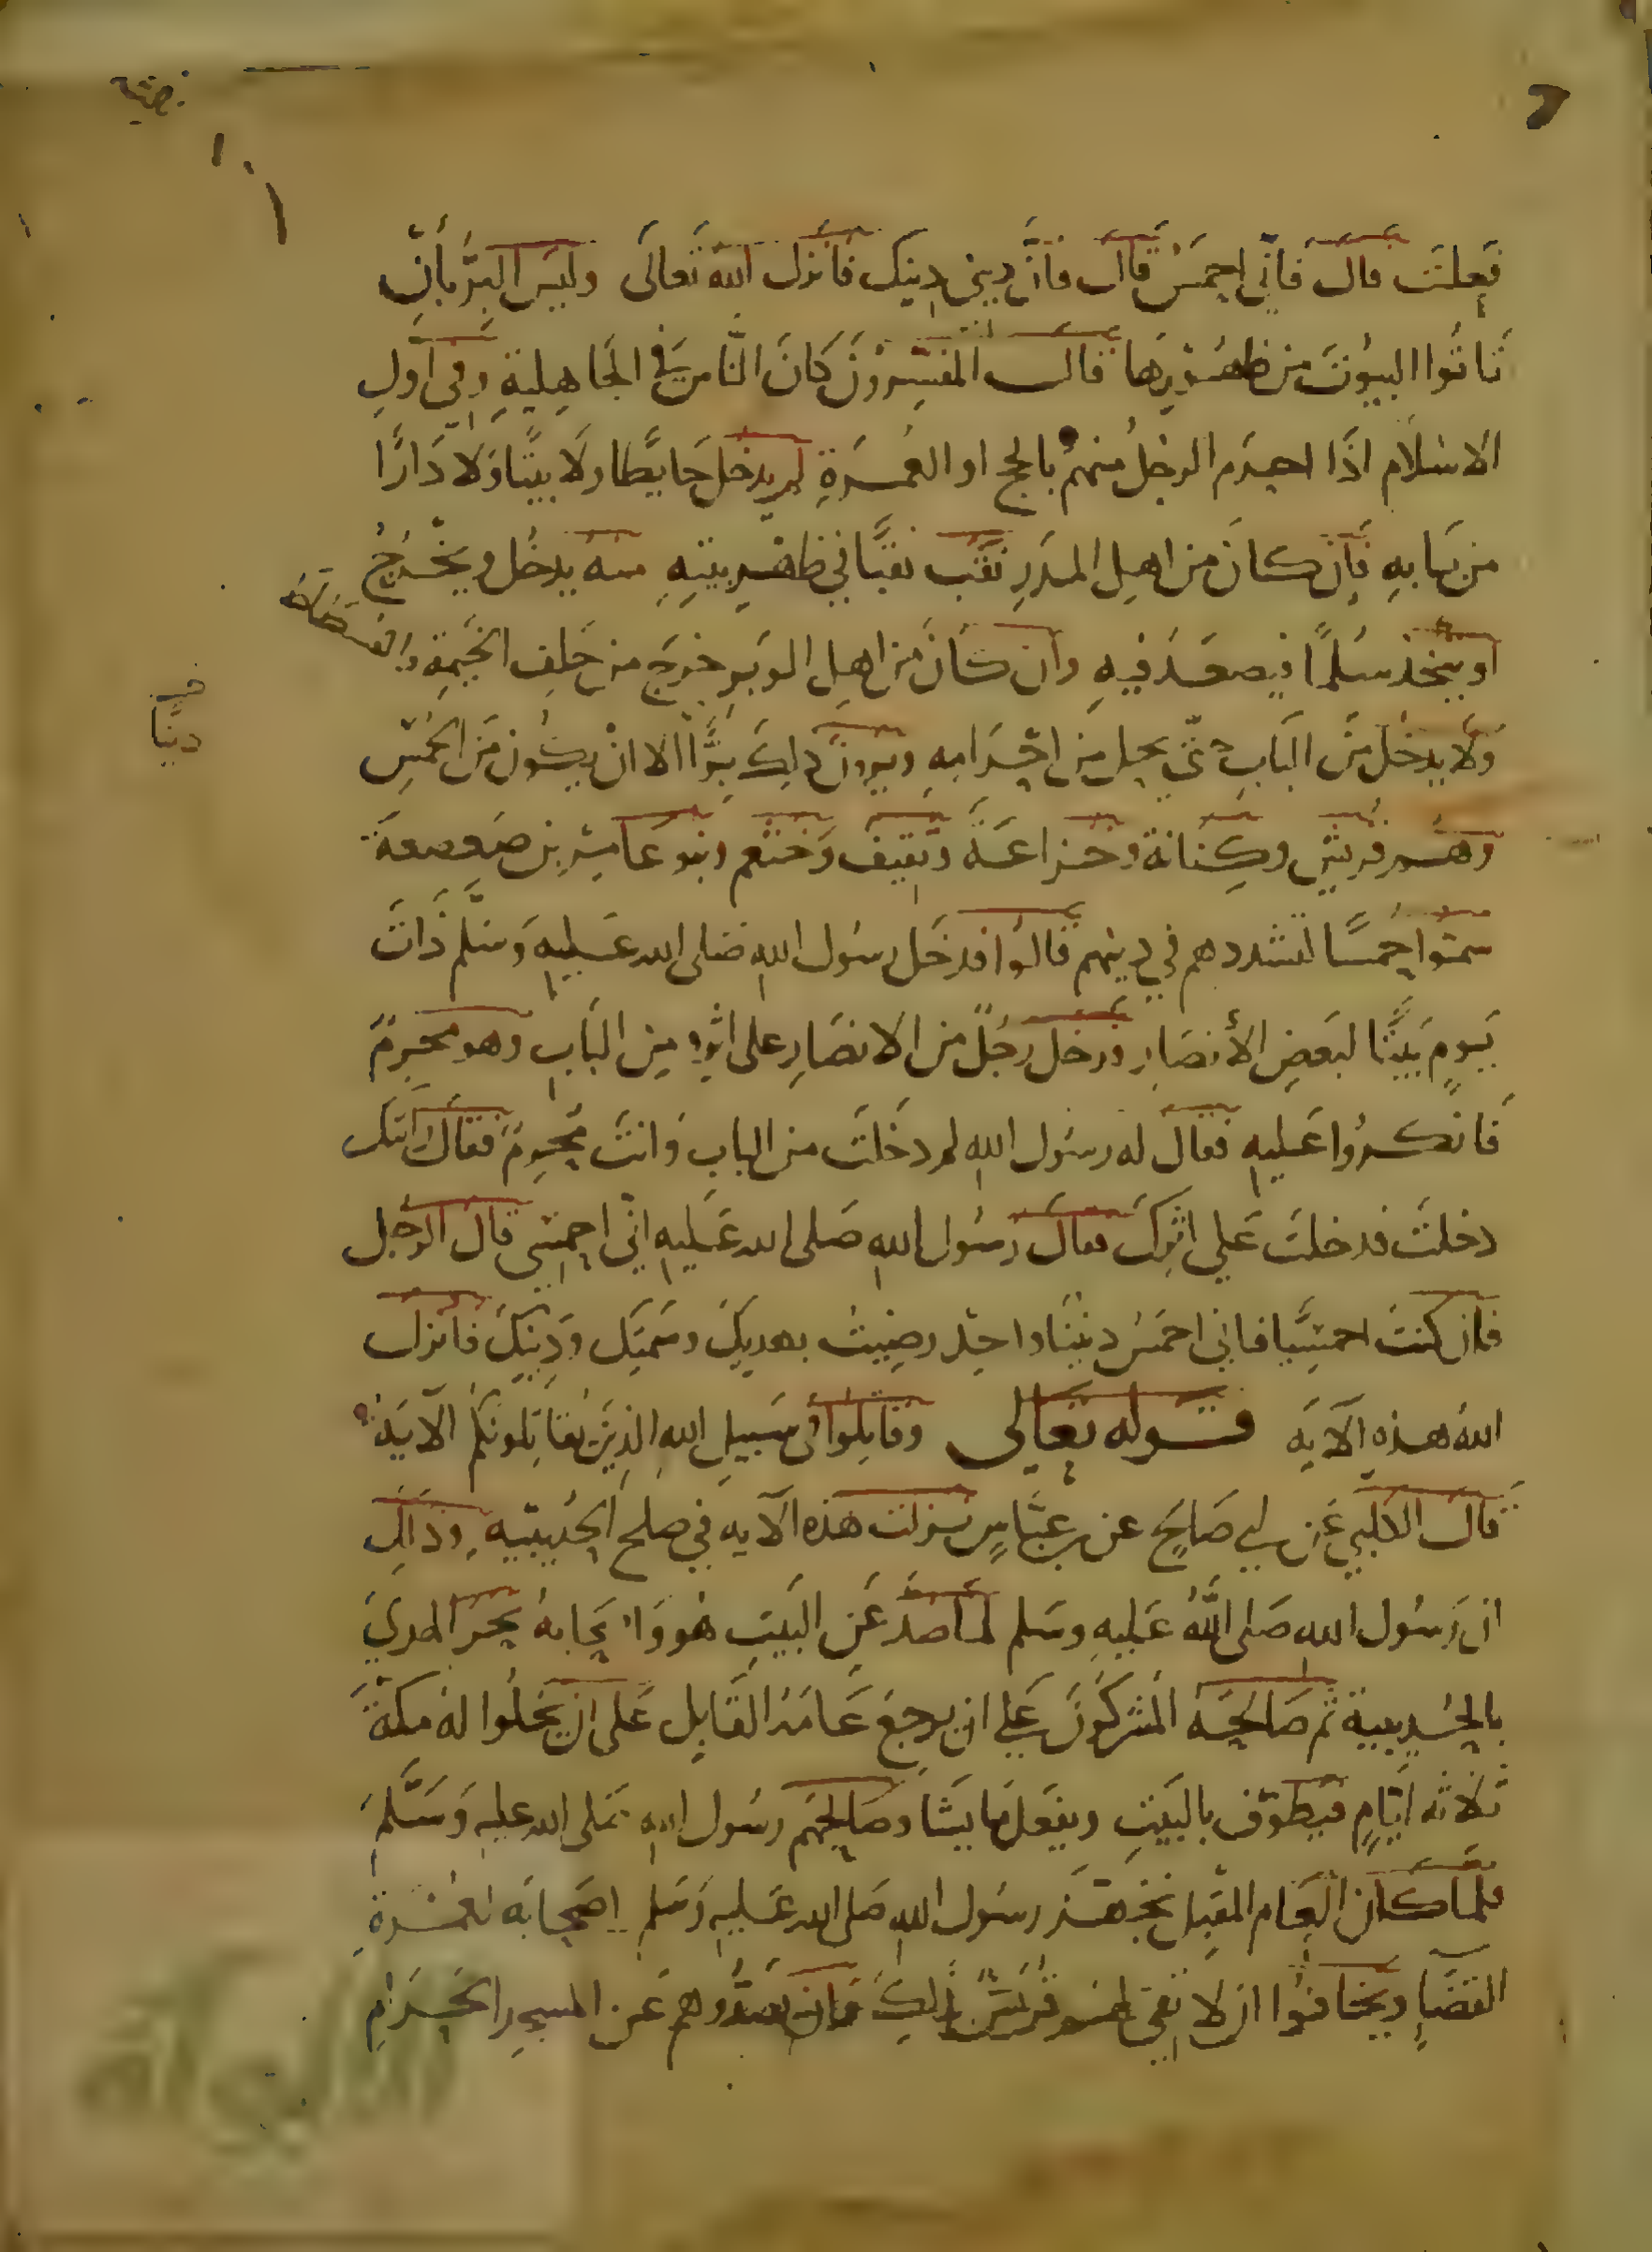 فعلت قال فاني احمس قال فان ديني دينك فانزل الله تعالى وليس البر بان
تاتوا البيوت من ظهورها قال المفسرون كان الناس في الجاهلية وفي اول
الاسلام اذا احرم الرجل منهم بالحج او العمرة لم يدخل حايطا ولا بيتا ولا دارا
من بابه فان كان من اهل المدر نقب نقبا في ظهر بيته منه يدخل ويخرج
او يتخذ سلما فيصعد فيه وان كان من اهل الوبر خرج من خلف الخيمة والفسطاط
ولا يدخل من الباب حتى يحل من احرامه ويرون ذلك برا الا ان يكون من الحمس
وهم قريش وكنانة وخزاعة وثقيف وخثعم وبنو عامر بن صعصعة
سموا حمسا لتشددهم في دينهم قالوا فدخل رسول الله صلى الله عليه وسلم ذات
يوم بيتا لبعض الأنصار ودخل رجل من الانصار على اثره من الباب وهو محرم
فانكروا عليه فقال له رسول الله لم دخلت من الباب وانت محرم فقال رايتك
دخلت فدخلت على اثرك فقال رسول الله صلى الله عليه اني احمسي قال الرجل
فان كنت احمسيا فاني احمس ديننا واحد رضيت بهديك وسمتك ودينك فانزل
الله هذه الآية قوله تعالى وقاتلوا في سبيل الله الذين يقاتلونكم الآية
قال الكلبي عن ابي صالح عن بن عباس نزلت هذه الآية في صلح الحديبية وذلك
ان رسول الله صلى الله عليه وسلم لما صد عن البيت هو واصحابه نحر الهدي
بالحديبية ثم صالحه المشركون على ان يرجع عامه القابل على ان يخلوا له مكة
ثلاثة ايام فيطوف بالبيت ويفعل ما يشا وصالحهم رسول الله صلى الله عليه وسلم
فلما كان العام المقبل تجهز رسول الله صلى الله عليه وسلم اصحابه لعمرة
القضاء وخافوا ان لا تفي لهم قريش بذلك وان يصدوهم عن المسجد الحرام